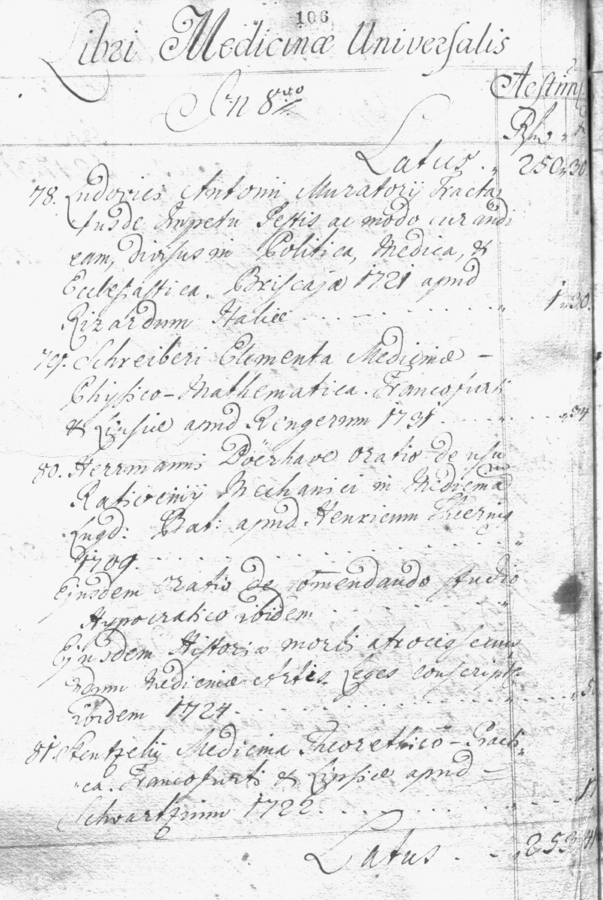 106
Libri Medicinæ Universalis
In 8vo
Aestim
Rh
Latus 250 30
78. Ludovici Antoni Muratorij Tracta-
tus de Impetu Pestis ac modo curandi
eam, divisus in Politica, Medica, &
Ecclesiastica. Briscajæ 1721 apud
Rizardum Italice 1 30
79. Schreiberi Elementa Medicinæ -
Physico-Mathematica. Francofurti
& Lipsiæ apud Rengerum 1731 34
80. Herrmanni Boerhave Oratio de usu
Ratiocinij Mechanici in Medicina
Lugd: Bat: apud Henricum
1709
Ejusdem Oratio de comendando studio
Hypocratico ibidem
Ejusdem Historia morbi atrocis secun-
dum Medicinæ Artis Leges conscripta
ibidem 1724
81. Stentzelij Medicina Theorethico-Practi-
ca. Francofurti & Lipsiæ apud =
Schvartzium 1722 17
Latus 253